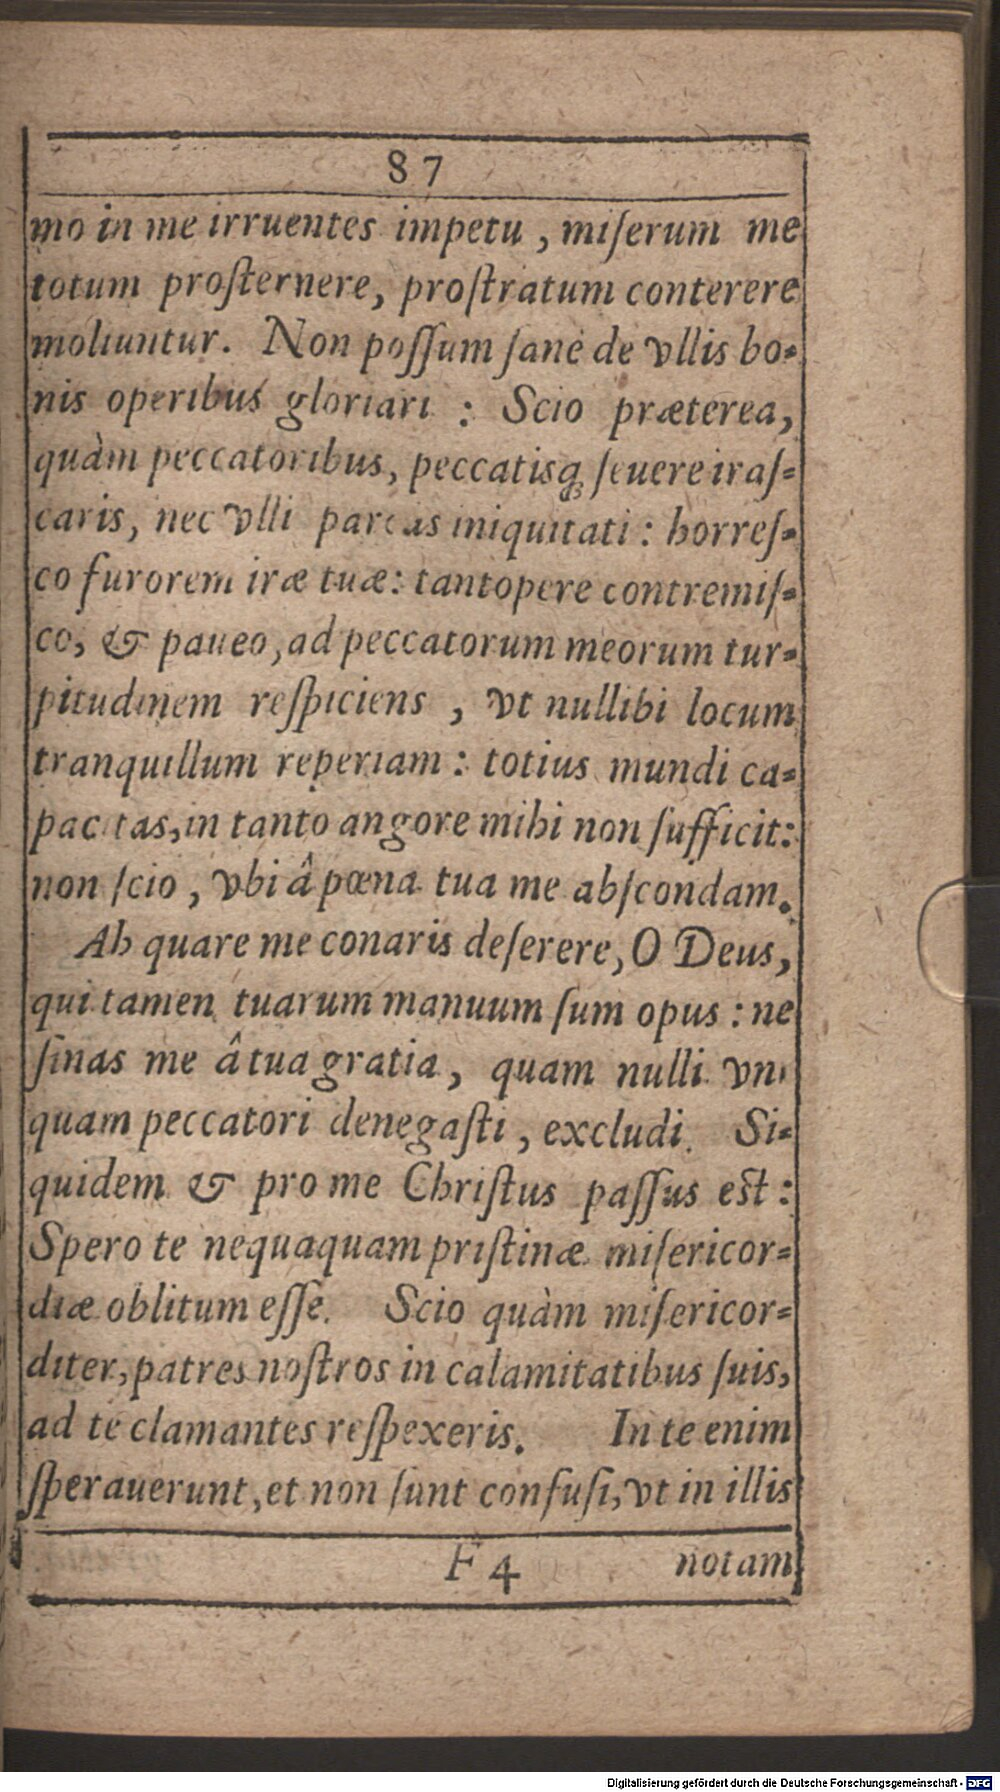 87
mo in me irruentes impetu, miſerum me
totum proſternere, proſtratum conterere
moliuntur. Non poſſum ſanè de vllis bo-
nis operibus gloriari : Scio præterea,
quàm peccatoribus, peccatisq; ſeuere iraſ-
caris, nec vlli parcas iniquitati : horreſ-
co furorem iræ tuæ: tantopere contremiſ-
co, & paueo, ad peccatorum meorum tur-
pitudinem reſpiciens , vt nullibi locum
tranquillum reperiam : totius mundi ca-
pacitas, in tanto angore mihi non ſufficit:
non ſcio , vbi â pœna tua me abſcondam.
Ah quare me conaris deſerere, O Deus,
qui tamen tuarum manuum ſum opus : ne
ſinas me â tua gratia, quam nulli vn-
quam peccatori denegaſti , excludi. Si-
quidem & pro me Chriſtus paſſus eſt :
Spero te nequaquam priſtinæ miſericor-
diæ oblitum eſſe. Scio quàm miſericor-
diter, patres noſtros in calamitatibus ſuis,
ad te clamantes reſpexeris. In te enim
ſperauerunt, et non ſunt confuſi, vt in illis
F 4 notam
Digitalisierung gefördert durch die Deutsche Forschungsgemeinschaft - DFG